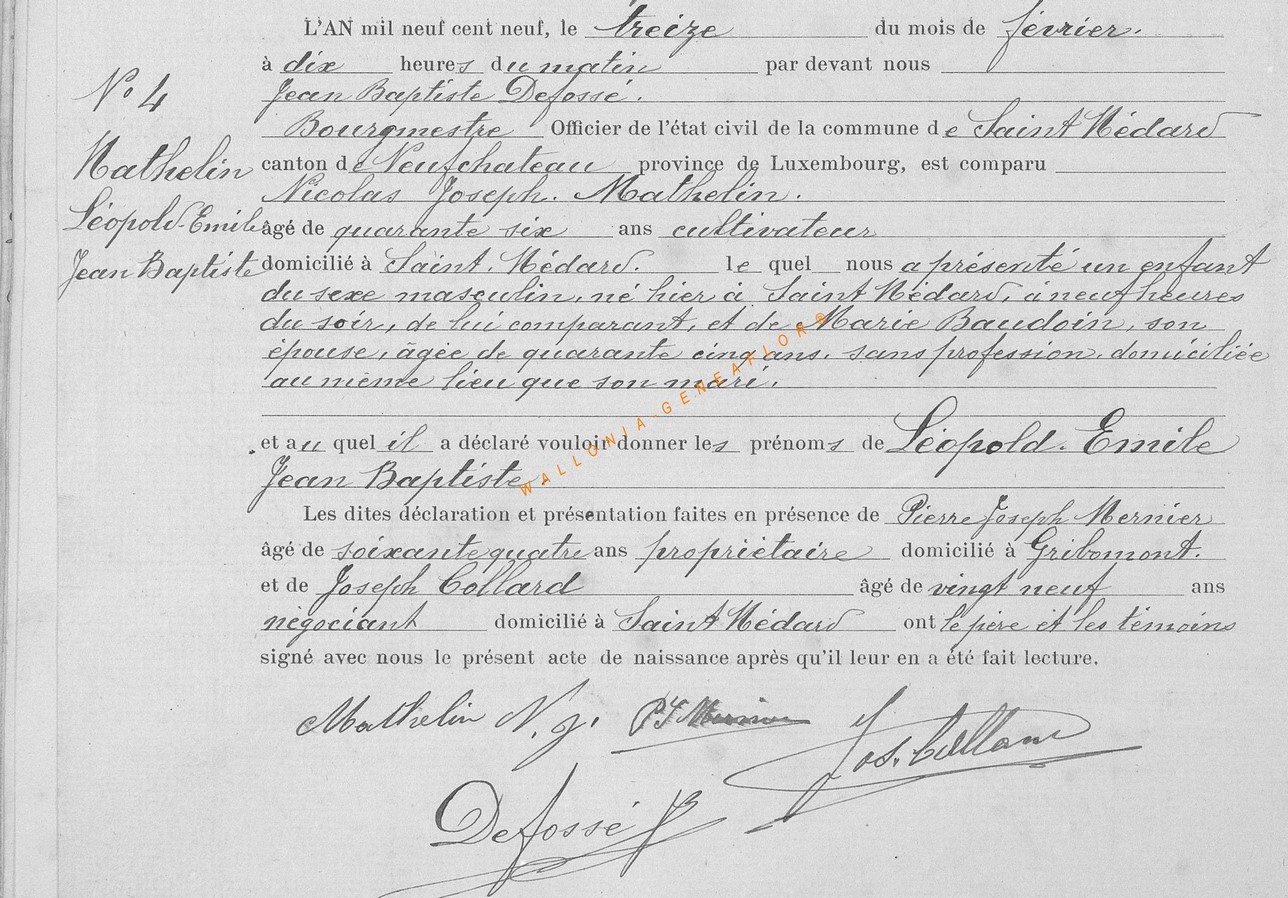 L'AN mil neuf cent neuf, le treize du mois de février.
à dix heures du matin par devant nous
Jean Baptiste Defossé.
Bourgmestre Officier de l'état civil de la commune de Saint Médard
canton de Neufchateau province de Luxembourg, est comparu
Nicolas Joseph. Mathelin.
âgé de quarante six ans cultivateur
domicilié à Saint. Médard. le quel nous a présenté un enfant
du sexe masculin, né hier à Saint Médard, à neuf heures
du soir, de lui comparant, et de Marie Baudoin, son
épouse, âgée de quarante cinq ans, sans profession, domiciliée
au même lieu que son mari.
et au quel il a déclaré vouloir donner les prénoms de Léopold. Emile
Jean Baptiste.
Les dites déclaration et présentation faites en présence de Pierre Joseph Mernier
âgé de soixante quatre ans propriétaire domicilié à Gribomont.
et de Joseph Collard âgé de vingt neuf ans
négociant domicilié à Saint Médard ont le père et les témoins
signé avec nous le présent acte de naissance après qu'il leur en a été fait lecture.
N° 4
Mathelin
Léopold-Emile
Jean Baptiste
Mathelin N. J. PJ Mernier Jos. Collard
Defossé JB
WALLONIA-GENEAFLOR®